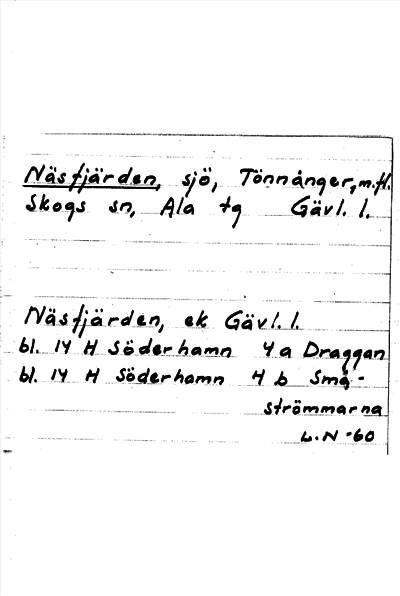 Näsfjärden, sjö, Tönnånger, m.fl.
Skogs sn, Ala tg Gävl. l.
Näsfjärden, ek Gävl. l.
bl. 14 H Söderhamn 4 a Draggan
bl. 14 H Söderhamn 4 b Små-
strömmarna
L.N -60